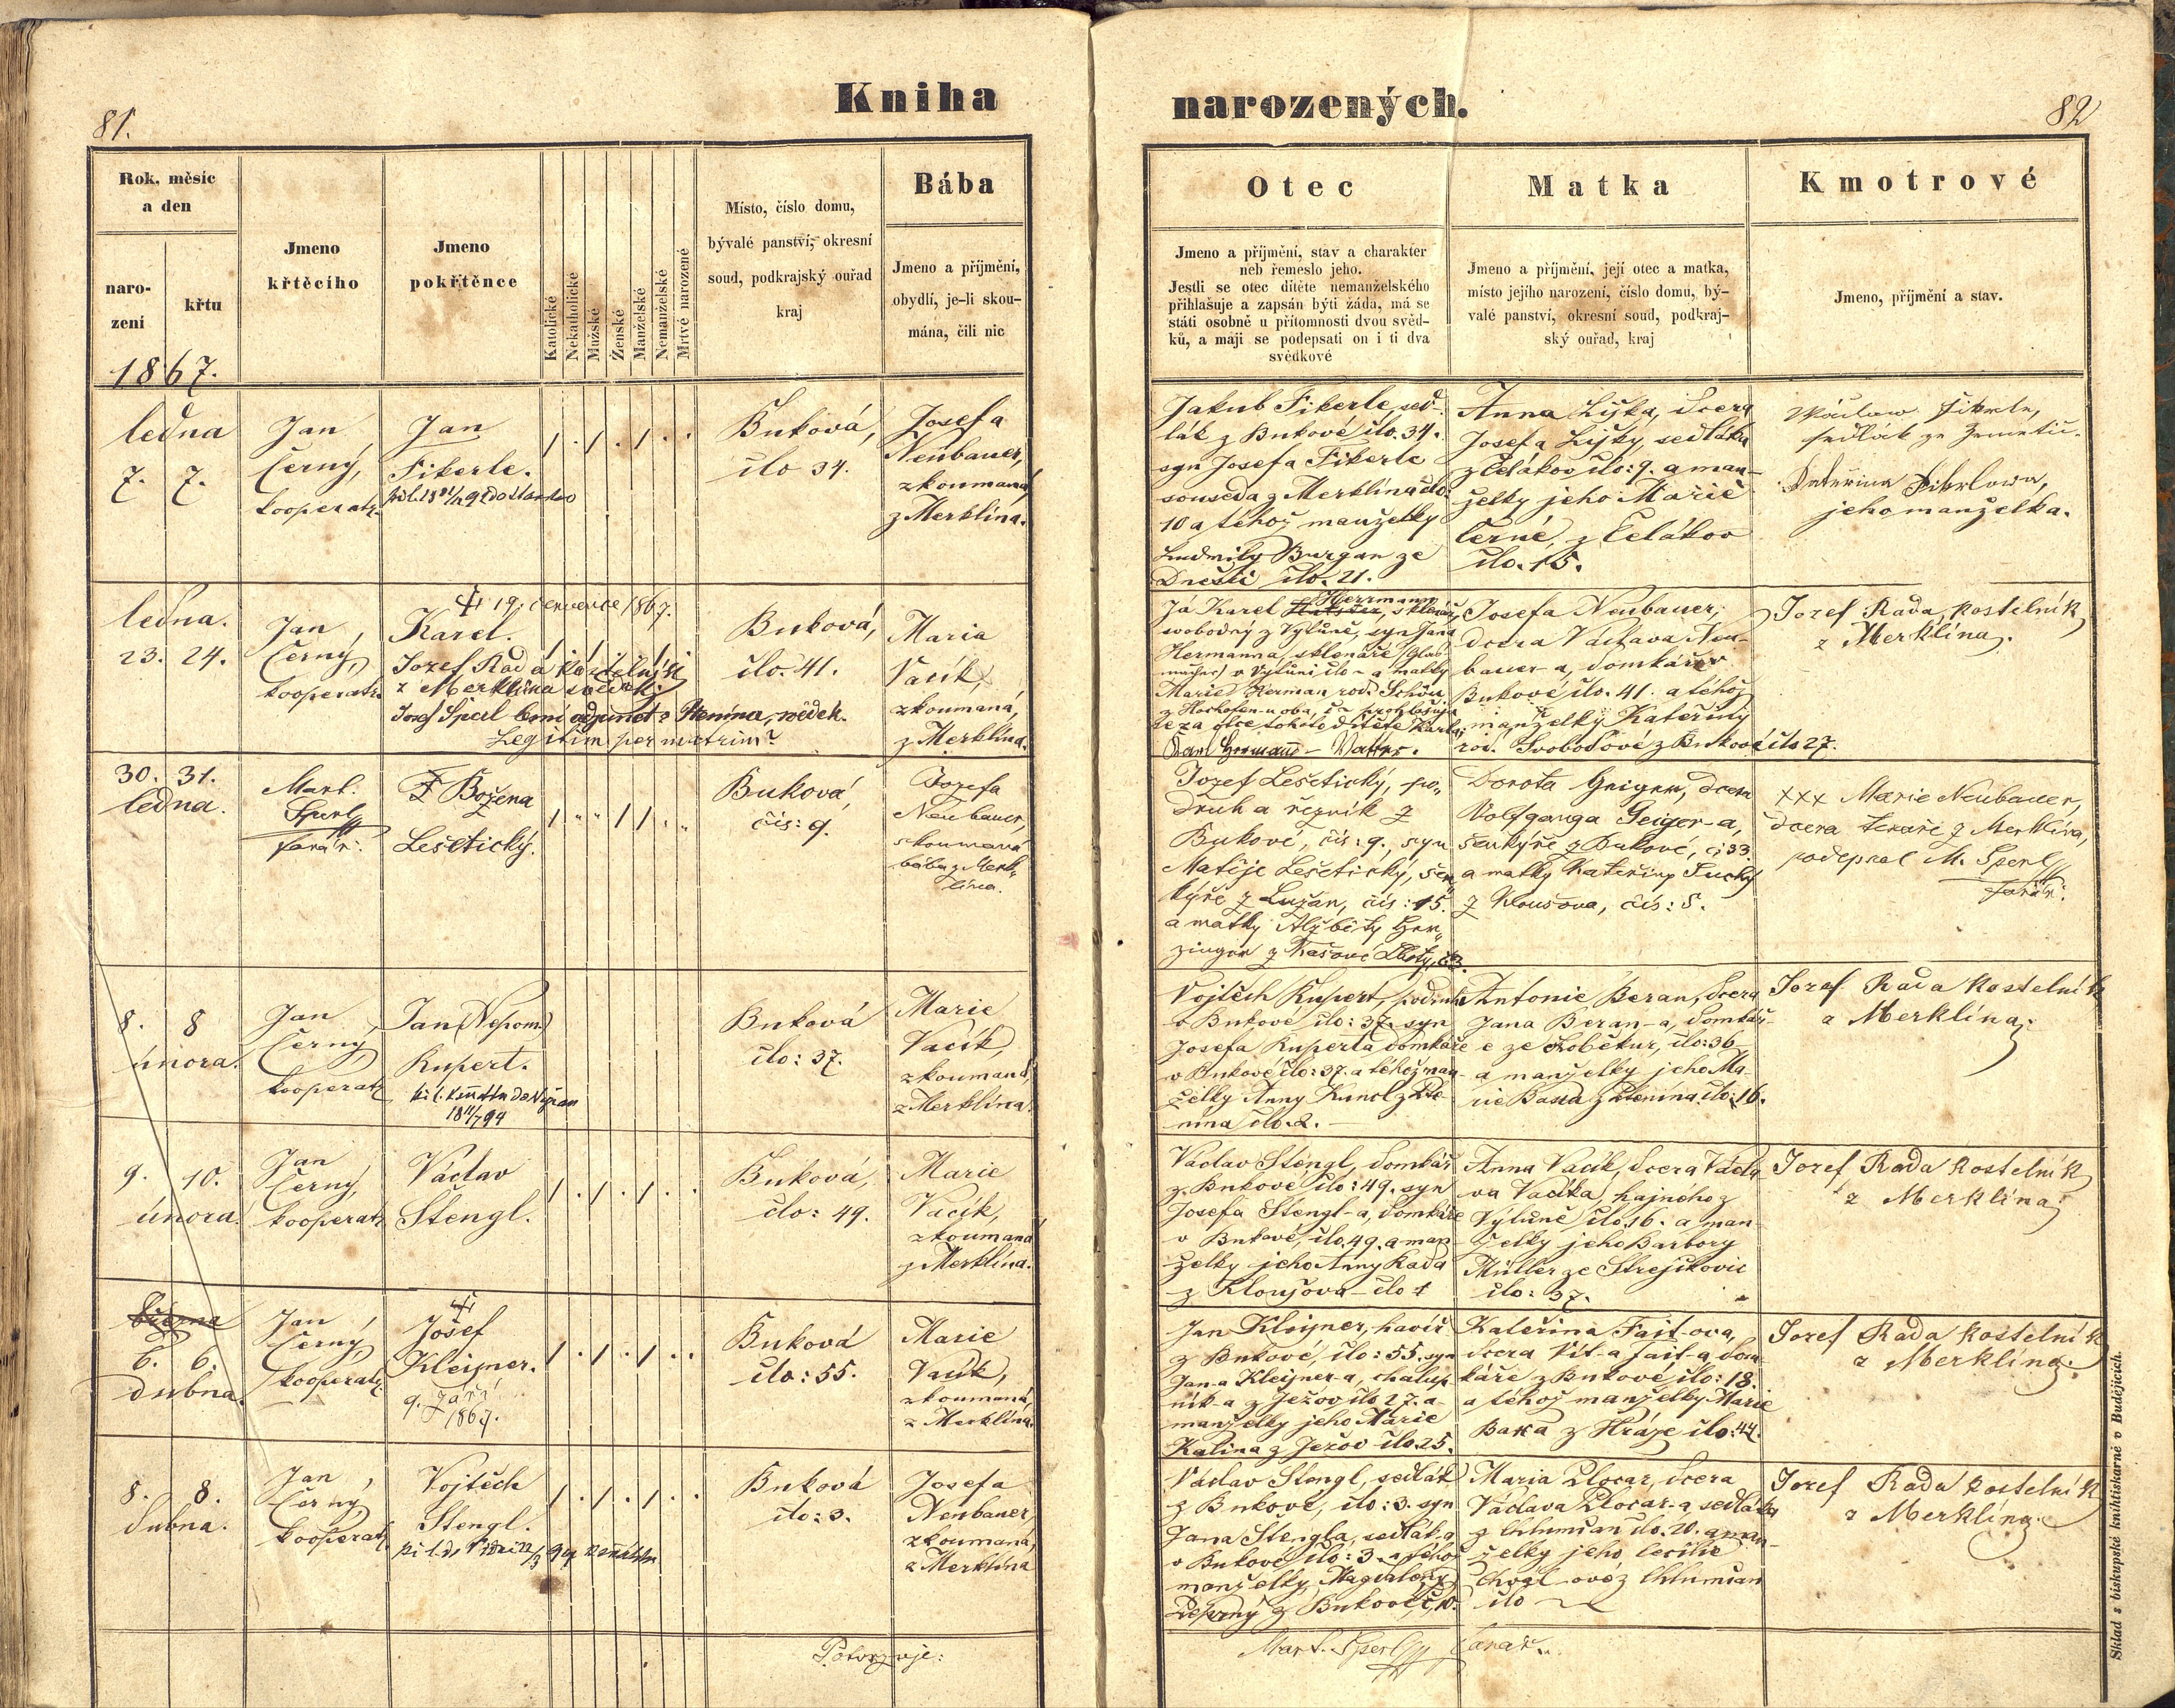 81.
Kniha
narozených.
82
Rok, měsíc
a den
naro-
zení
křtu
1867.
Jmeno
křtěcího
Jmeno
pokřtěnce
Katolické
Nekatholické
Mužské
Ženské
Manželské
Nemanželské
Mrtvě narozené
Místo, číslo domu,
bývalé panství, okresní
soud, podkrajský ouřad
kraj
Bába
Jmeno a příjmění,
obydlí, je-li skou-
mána, čili nic
Otec
Jmeno a příjmění, stav a charakter
neb řemeslo jeho.
Jestli se otec dítěte nemanželského
přihlašuje a zapsán býti žádá, má se
státi osobně u přítomnosti dvou svěd-
ků, a mají se podepsati on i ti dva
svědkové
Matka
Jmeno a příjmění, její otec a matka,
místo jejího narození, číslo domu, bý-
valé panství, okresní soud, podkraj-
ský ouřad, kraj
Kmotrové
Jmeno, příjmění a stav.
ledna
7. 7.
Jan
Černý,
kooperatr
Jan
Fikerle.
/ . / . / . .
Buková,
člo 34.
Josefa
Neubauer,
zkoumaná
z Merklína.
Jakub Fikerle, sed-
lák z Bukové člo. 34.
syn Josefa Fikerle
souseda z Merklína člo:
10 a téhož manželky
Ludmily Burgan ze
Dnešic člo. 21.
Anna Liška, dcera
Josefa Lišky, sedláka
z Čelákov člo: 9. a man-
želky jeho Marie
Černé, z Čelákov
člo. 15.
Václaw Fikrle,
sedlák ze Zemetic.
Kateřina Fikrlowa,
jeho manželka.
ledna.
23. 24.
Jan
Černý,
kooperatr
19. července 1867.
Karel.
Jozef Rada kostelník
z Merklína svědek.
Josef Sperl, svědek.
Buková,
člo. 41.
Maria
Vacík,
zkoumaná,
z Merklína.
Já Karel Herrmann, sklenář,
svobodný z Výtůně, syn Jana
Hermanna, sklenáře
Marie Herman rod. Schön
za otce tohoto dítěte Karla
Josefa Neubauer,
dcera Václava Neu-
bauer-a, domkáře v
Bukové člo. 41. a téhož
manželky Kateřiny
roz. Svobodové z Bukové člo 27.
Jozef Rada, kostelník
z Merklína.
30. 31.
ledna.
Mart.
Sperl
farář.
Božena
Lešetický.
/ . . / / . .
Buková,
čís: 9.
Jozefa
Neubauer,
skoumaná
bába z Merk-
lína.
Jozef Lešetický, po-
druh a řezník z
Bukové, čís: 9., syn
Matěje Lešetický, šen-
kýře z Lužan, čís: 15.
a matky Alžběty Her-
zinger z Lhoty, č. 3.
Dorota Geiger, dcera
Volfganga Geiger-a,
šenkýře z Bukové, č: 33.
a matky Kateřiny Suchý
z Kloušova, čís: 5.
xxx Marie Neubauer,
dcera z Merklína,
podepsal M. Sperl
farář.
8. 8
února.
Jan
Černý
kooperatr
Jan (Nepom.)
Rupert.
Buková
člo: 37.
Marie
Vacík,
zkoumaná,
z Merklína.
Vojtěch Rupert, podruh
v Bukové člo: 37. syn
Josefa Ruperta domkáře
v Bukové člo: 37. a téhož man-
želky Anny Kuncl z Pte-
nína člo. 2.
Antonie Beran, dcera
Jana Beran-a, domkář-
e ze Soběkur, člo: 36
a manželky jeho Ma-
rie Basta z Ptenína člo: 16.
Jozef Rada kostelník
z Merklína.
9. 10.
února.
Jan
Černý,
kooperatr
Václav
Štengl.
/ . / . / . .
Buková,
člo: 49.
Marie
Vacík,
zkoumaná
z Merklína.
Václav Štengl, domkář
z Bukové člo: 49. syn
Josefa Štengl-a, domkáře
v Bukové, člo. 49. a man-
želky jeho Anny Rada
z Kloušova člo 1
Anna Vacík, dcera Václa-
va Vacíka, hajného z
Výtůně člo. 16. a man-
želky jeho Barbory
Müller ze Strejčkovic
člo: 37.
Jozef Rada kostelník
z Merklína.
března
6. 6.
dubna.
Jan
Černý,
kooperatr
Josef
Kleisner.
9. září
1867.
/ . / . / . .
Buková
člo: 55.
Marie
Vacík,
zkoumaná,
z Merklína.
Jan Kleisner, havíř
z Bukové, člo: 55. syn
Jan-a Kleisner-a, chalup-
ník-a z Ježov člo 27. a
manželky jeho Marie
Kalina z Ježov člo. 25.
Kateřina Fait-ova,
dcera Vít-a Fait-a dom-
káře z Bukové člo: 18.
a téhož manželky Marie
z Hráze člo: 44.
Jozef Rada kostelník
z Merklína.
8. 8.
dubna.
Jan
Černý
kooperatr
Vojtěch
Štengl.
/ . / . / . .
Buková
člo: 3.
Josefa
Neubauer
zkoumaná,
z Merklína
Václav Štengl, sedlák
z Bukové, člo: 3. syn
Jana Štengla, sedlák-a
v Bukové člo: 3. a téhož
manželky Magdaleny
z Bukové č. 10.
Maria Plocar, dcera
Václava Plocar-a, sedláka
z Chlumčan člo. 20. a man-
želky jeho Cecilie
z Chlumčan
člo
Jozef Rada kostelník
z Merklína.
Potvrzuje:
Mart. Sperl farář.
Sklad s biskupské knihtiskarně v Budějicích.